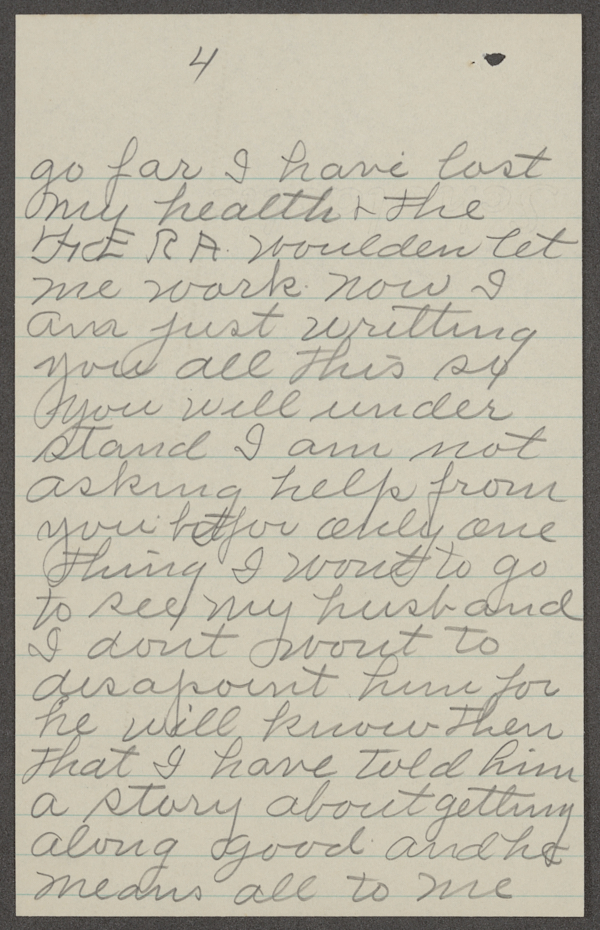 4
go far I have lost
my health + the
F E R A. woulden let
me work now I
am just writting
you all this so
you will under
stand I am not
asking help from
you but for only one
thing I wont to go
to see my husband
I dont wont to
disapoint him for
he will know then
that I have told him
a story about getting
along good and he
means all to me